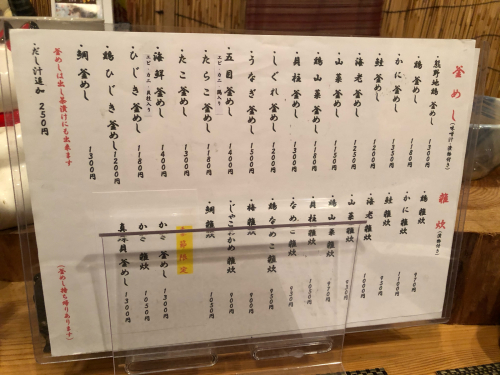 釜めし（味噌汁・漬物付き）
・熊野地鶏釜めし 1300円
・鶏釜めし 1180円
・かに釜めし 1350円
・鮭釜めし 1200円
・海老釜めし 1250円
・山菜釜めし 1150円
・鶏山菜釜めし 1180円
・貝柱釜めし 1300円
・しぐれ釜めし 1200円
・うなぎ釜めし 1500円
・五目釜めし 1400円
（エビ・カニ・鶏入り）
・たらこ釜めし 1180円
・たこ釜めし 1300円
・海鮮釜めし 1400円
（エビ・カニ・貝柱入り）
・ひじき釜めし 1180円
・鶏ひじき釜めし 1200円
・鯛釜めし 1300円
釜めしは出し茶漬けにも出来ます
・だし汁追加 250円
雑炊（漬物付き）
・鶏雑炊 970円
・かに雑炊 1100円
・鮭雑炊 950円
・海老雑炊 1000円
・山菜雑炊
・鶏山菜雑炊 970円
・貝柱雑炊 1050円
・なめこ雑炊 930円
・鶏なめこ雑炊 950円
・梅雑炊 900円
・じゃこわかめ雑炊 900円
・鯛雑炊 1050円
・季節限定
かき釜めし 1300円
かき雑炊 1050円
真珠貝釜めし 1300円
（釜めし持ち帰りあります）